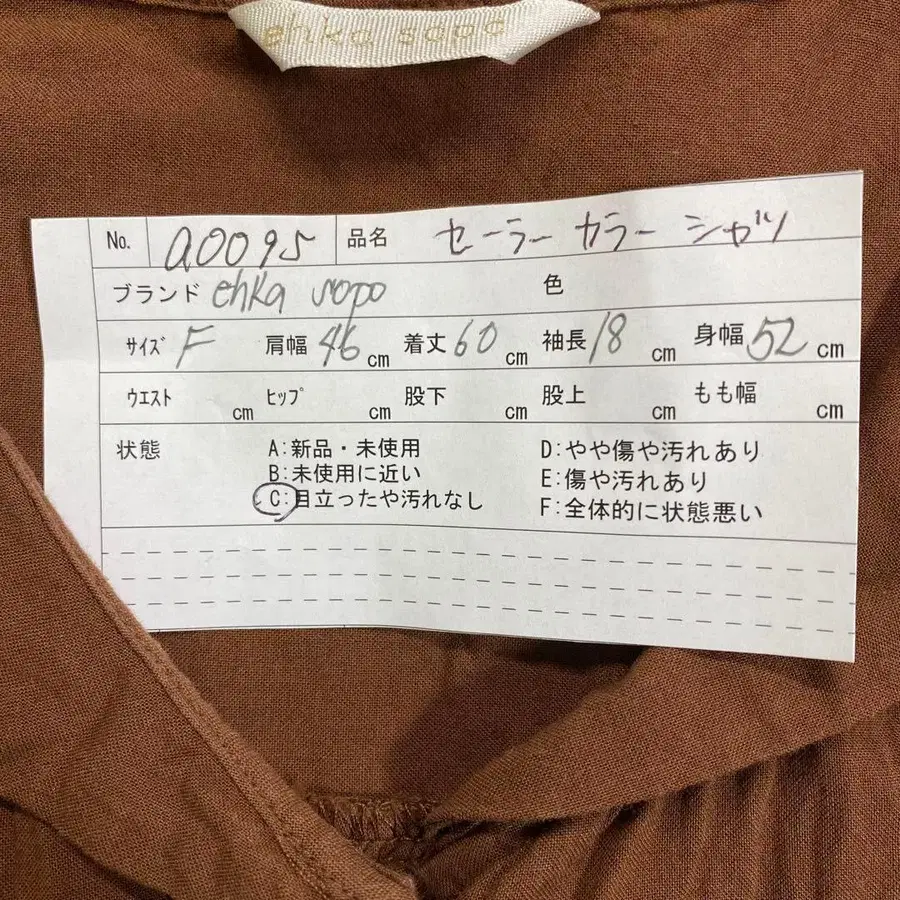 ehka sopo
No. a0095 品名 セーラーカラーシャツ
ブランド ehka sopo 色
ｻｲｽﾞ F 肩幅 46 cm 着丈 60 cm 袖長 18 cm 身幅 52 cm
ｳｴｽﾄ cm ﾋｯﾌﾟ cm 股下 cm 股上 cm もも幅 cm
状態 A:新品・未使用 D:やや傷や汚れあり
B:未使用に近い E:傷や汚れあり
C:目立ったや汚れなし F:全体的に状態悪い